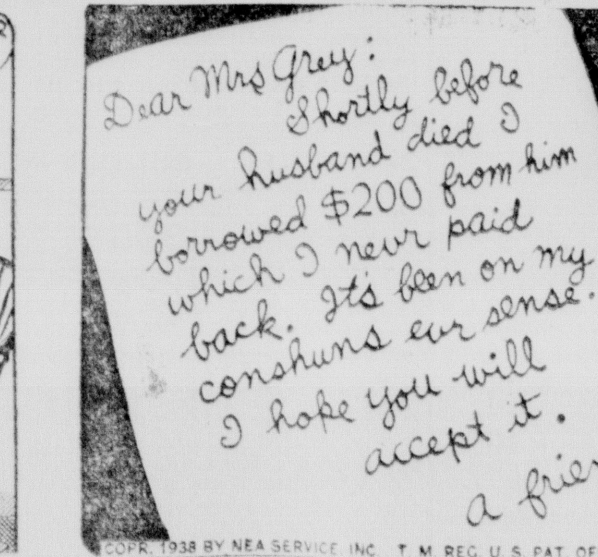 Dear Mrs Grey:
Shortly before
your husband died I
borrowed $200 from him
which I nevr paid
back. It's been on my
conshuns evr sense.
I hope you will
accept it.
a frien
COPR. 1938 BY NEA SERVICE, INC. T. M. REG. U. S. PAT. OF